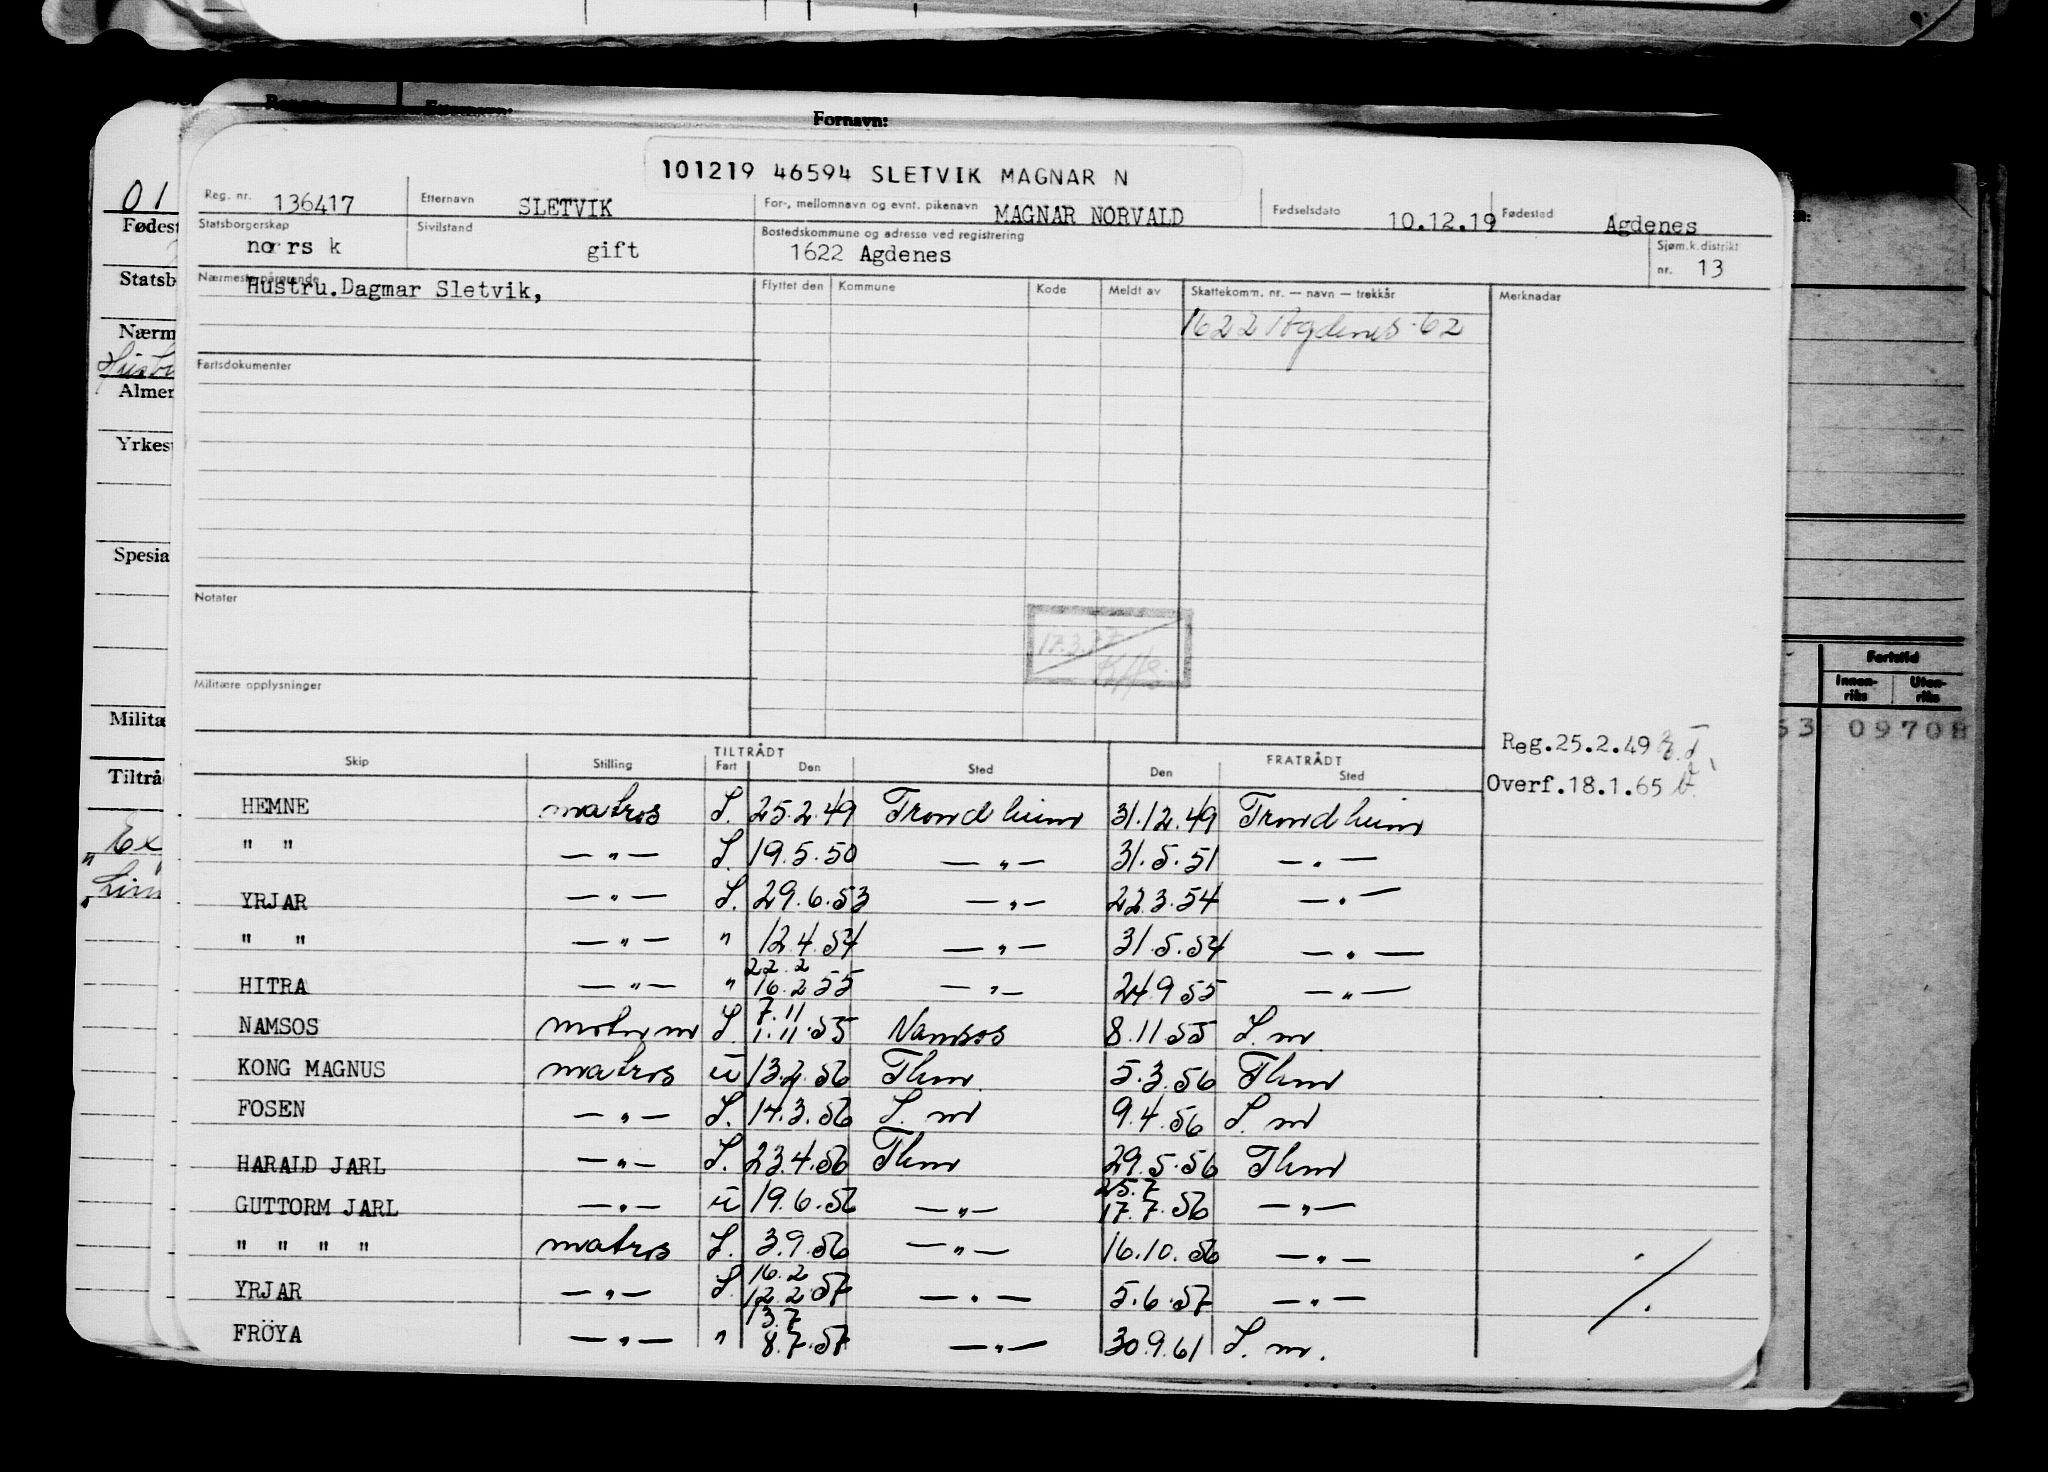 Fornavn:
101219 46594 SLETVIK MAGNAR N
Reg. nr. 136417 Etternavn SLETVIK For-, mellomnavn og evnt. pikenavn MAGNAR NORVALD Fødselsdato 10.12.19 Fødested Agdenes
Statsborgerskap norsk Sivilstand gift Bostedskommune og adresse ved registrering 1622 Agdenes Sjøm.k.distrikt nr. 13
Nærmeste pårørende Hustru.Dagmar Sletvik, Flyttet den Kommune Kode Meldt av Skattekomm. nr. — navn — trekkår Merknadar
1622 Agdenes 62
Fartsdokumenter
Notater
Militære opplysninger
Reg.25.2.49
Overf.18.1.65
TILTRÅDT FRATRÅDT
Skip Stilling Fart Den Sted Den Sted
HEMNE matros I. 25.2.49 Trondheim 31.12.49 Trondheim
" " — " — I. 19.5.50 — " — 31.5.51 — " —
YRJAR — " — I. 29.6.53 — " — 22.3.54 — " —
" " — " — " 12.4.54 — " — 31.5.54 — " —
22.2
HITRA — " — " 16.2.55 — " — 24.9.55 — " —
7.11
NAMSOS I. 1.11.55 Namsos 8.11.55 I. m
KONG MAGNUS matros u 13.2.56 Thm. 5.3.56 Thm
FOSEN — " — I. 14.3.56 I. m 9.4.56 I. m
HARALD JARL — " — I. 23.4.56 Thm 29.5.56 Thm
25.7
GUTTORM JARL — " — u 19.6.56 — " — 17.7.56 — " —
" " " " matros I. 3.9.56 — " — 16.10.56 — " —
16.2
YRJAR — " — I. 12.2.57 — " — 5.6.57 — " —
13.7
FRÖYA — " — " 8.7.57 — " — 30.9.61 I. m.
01
Fødest
Statsb
Nærm
Almer
Yrkest
Spesia
Militæ
Tiltrå
" Ex
Fartstid
Innen-riks Uten-riks
53 09708